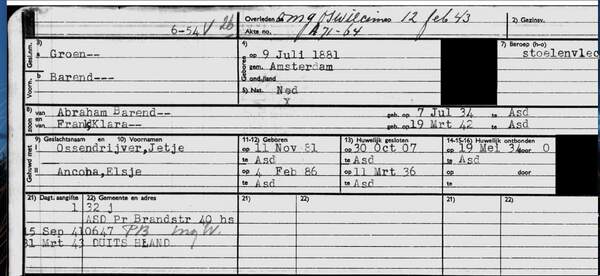 6-54 V 26
Overleden omg Oswiecim te 12 feb 43
Akte no. A 71-64
2) Gezinsv.
Gesl.nm. 3) a Groen--
Voorn. b Barend---
4) Geboren op 9 Juli 1881
gem. Amsterdam
ond./land
5) Nat. Ned
x
7) Beroep (h-o)
stoelenvlec
8) zoon van en van Abraham Barend-- geb. op 7 Jul 34 te Asd
Frank, Klara-- geb. op 19 Mrt 42 te Asd
9) Geslachtsnaam en 10) Voornamen 11-12) Geboren 13) Huwelijk gesloten 14-15-16) Huwelijk ontbonden
Gehuwd met I Ossendrijver, Jetje op 11 Nov 81 op 30 Oct 07 op 19 Mei 34 door O
te Asd te Asd te Asd
II Ancona, Elsje op 4 Feb 86 op 11 Mrt 36 op door
te Asd te Asd te
21) Dagt. aangifte 22) Gemeente en adres 21) 22) 21) 22)
1 32 j
ASD Pr Brandstr 40 hs
15 Sep 41 0647 PB Ing W.
31 Mrt 43 DUITSHLAND